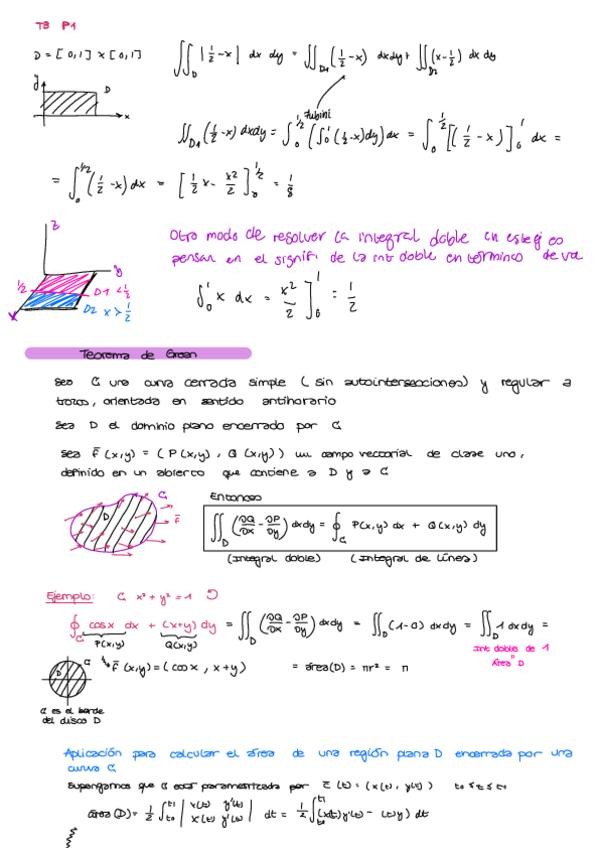 T3 P1
D = [0,1] × [0,1]
∬_D |1/2 - x| dx dy = ∬_D1 (1/2 - x) dx dy + ∬_D2 (x - 1/2) dx dy
y D
x
Fubini
∬_D1 (1/2 - x) dx dy = ∫_0^{1/2} (∫_0^1 (1/2 - x) dy) dx = ∫_0^{1/2} [(1/2 - x)]_0^1 dx =
= ∫_0^{1/2} (1/2 - x) dx = [1/2 x - x²/2]_0^{1/2} = 1/8
z
Otro modo de resolver la integral doble en este ej es
pensar en el signifi. de la int doble en términos de vol
y
1/2
D1 < 1/2
D2 x > 1/2
x
∫_0^1 x dx = x²/2 ]_0^1 = 1/2
Teorema de Green
Sea C una curva cerrada simple (sin autointersecciones) y regular a
trozos, orientada en sentido antihorario
Sea D el dominio plano encerrado por C
Sea F̄(x,y) = (P(x,y), Q(x,y)) un campo vectorial de clase uno,
definido en un abierto que contiene a D y a C
C
D
F̄
Entonces
∬_D (∂Q/∂x - ∂P/∂y) dx dy = ∮_C P(x,y) dx + Q(x,y) dy
(Integral doble) (Integral de línea)
Ejemplo: C x² + y² = 1
∮_C cosx dx + (x+y) dy = ∬_D (∂Q/∂x - ∂P/∂y) dx dy = ∬_D (1-0) dx dy = ∬_D 1 dx dy =
P(x,y) Q(x,y)
int doble de 1
"
Área D
C
D
F̄(x,y) = (cosx, x+y)
= área(D) = πr² = π
C es el borde
del disco D
Aplicación para calcular el área de una región plana D encerrada por una
curva C
Supongamos que C está parametrizada por c̄(t) = (x(t), y(t)) t0 ≤ t ≤ t1
área(D) = 1/2 ∫_{t0}^{t1} | x(t) y'(t) x(t) y'(t) | dt = 1/2 ∫_{t0}^{t1} (x(t)y'(t) - (t)y) dt